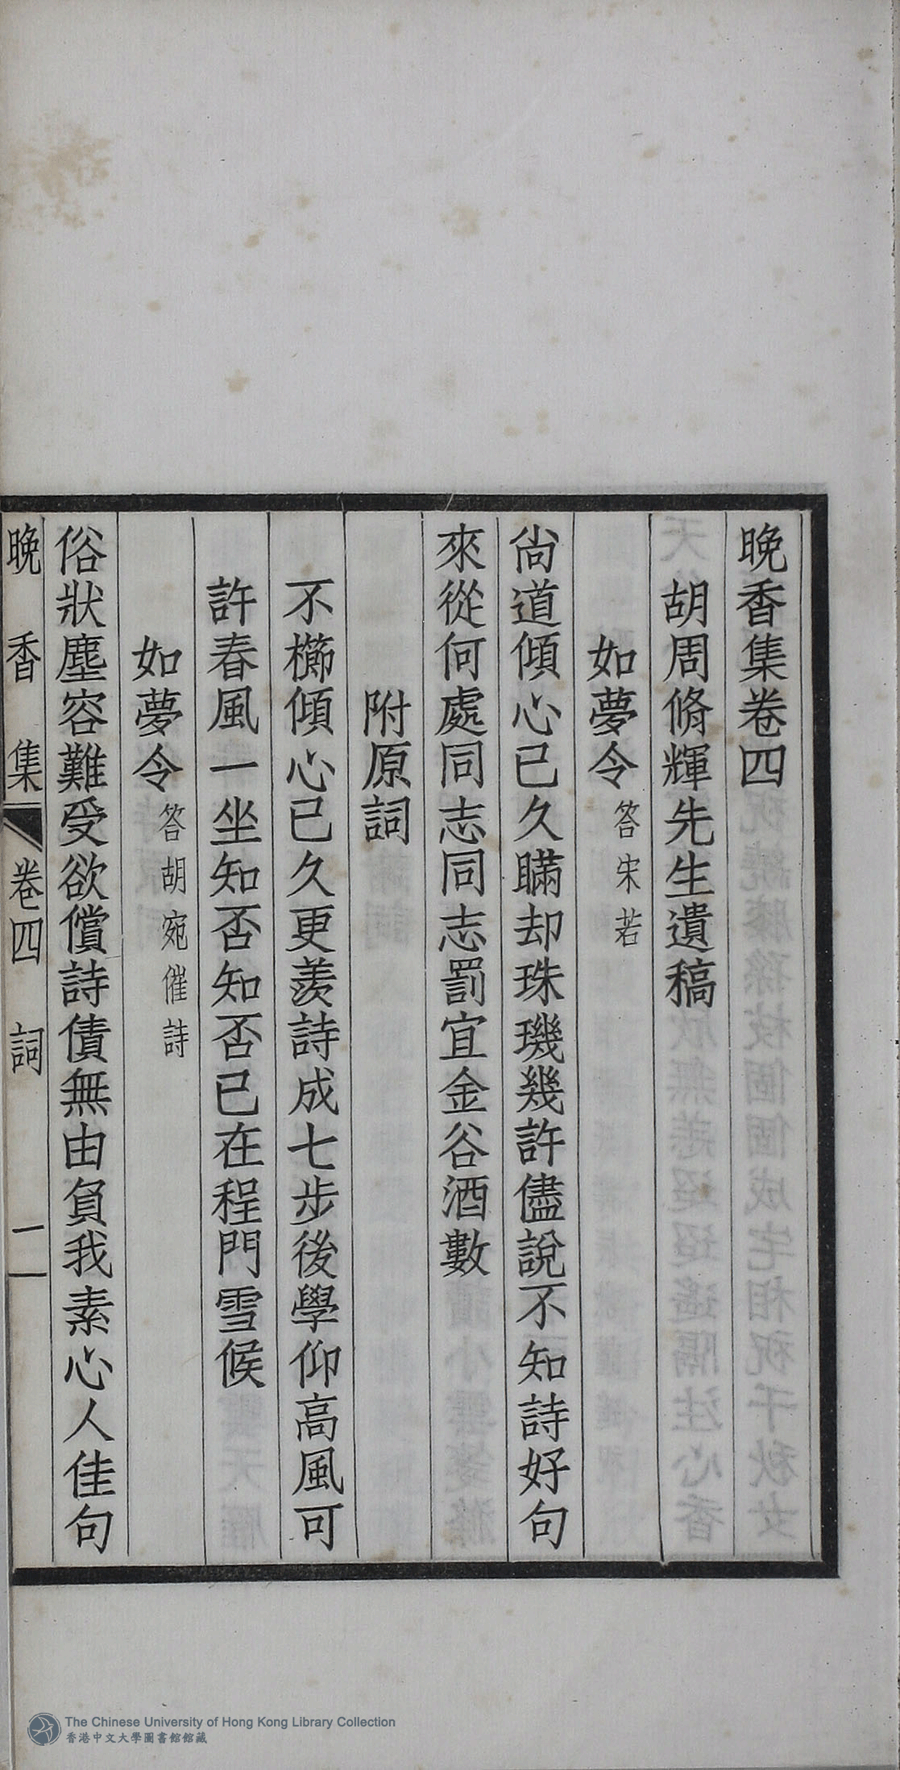 晚香集卷四
胡周脩輝先生遺稿
如夢令 答宋若
尙道傾心已久瞞却珠璣幾許儘說不知詩好句
來從何處同志同志罰宜金谷酒數
附原詞
不櫛傾心已久更羨詩成七步後學仰高風可
許春風一坐知否知否已在程門雪候
如夢令 答胡宛催詩
俗狀塵容難受欲償詩債無由負我素心人佳句
晚香集 卷四 詞 一
The Chinese University of Hong Kong Library Collection
香港中文大學圖書館館藏